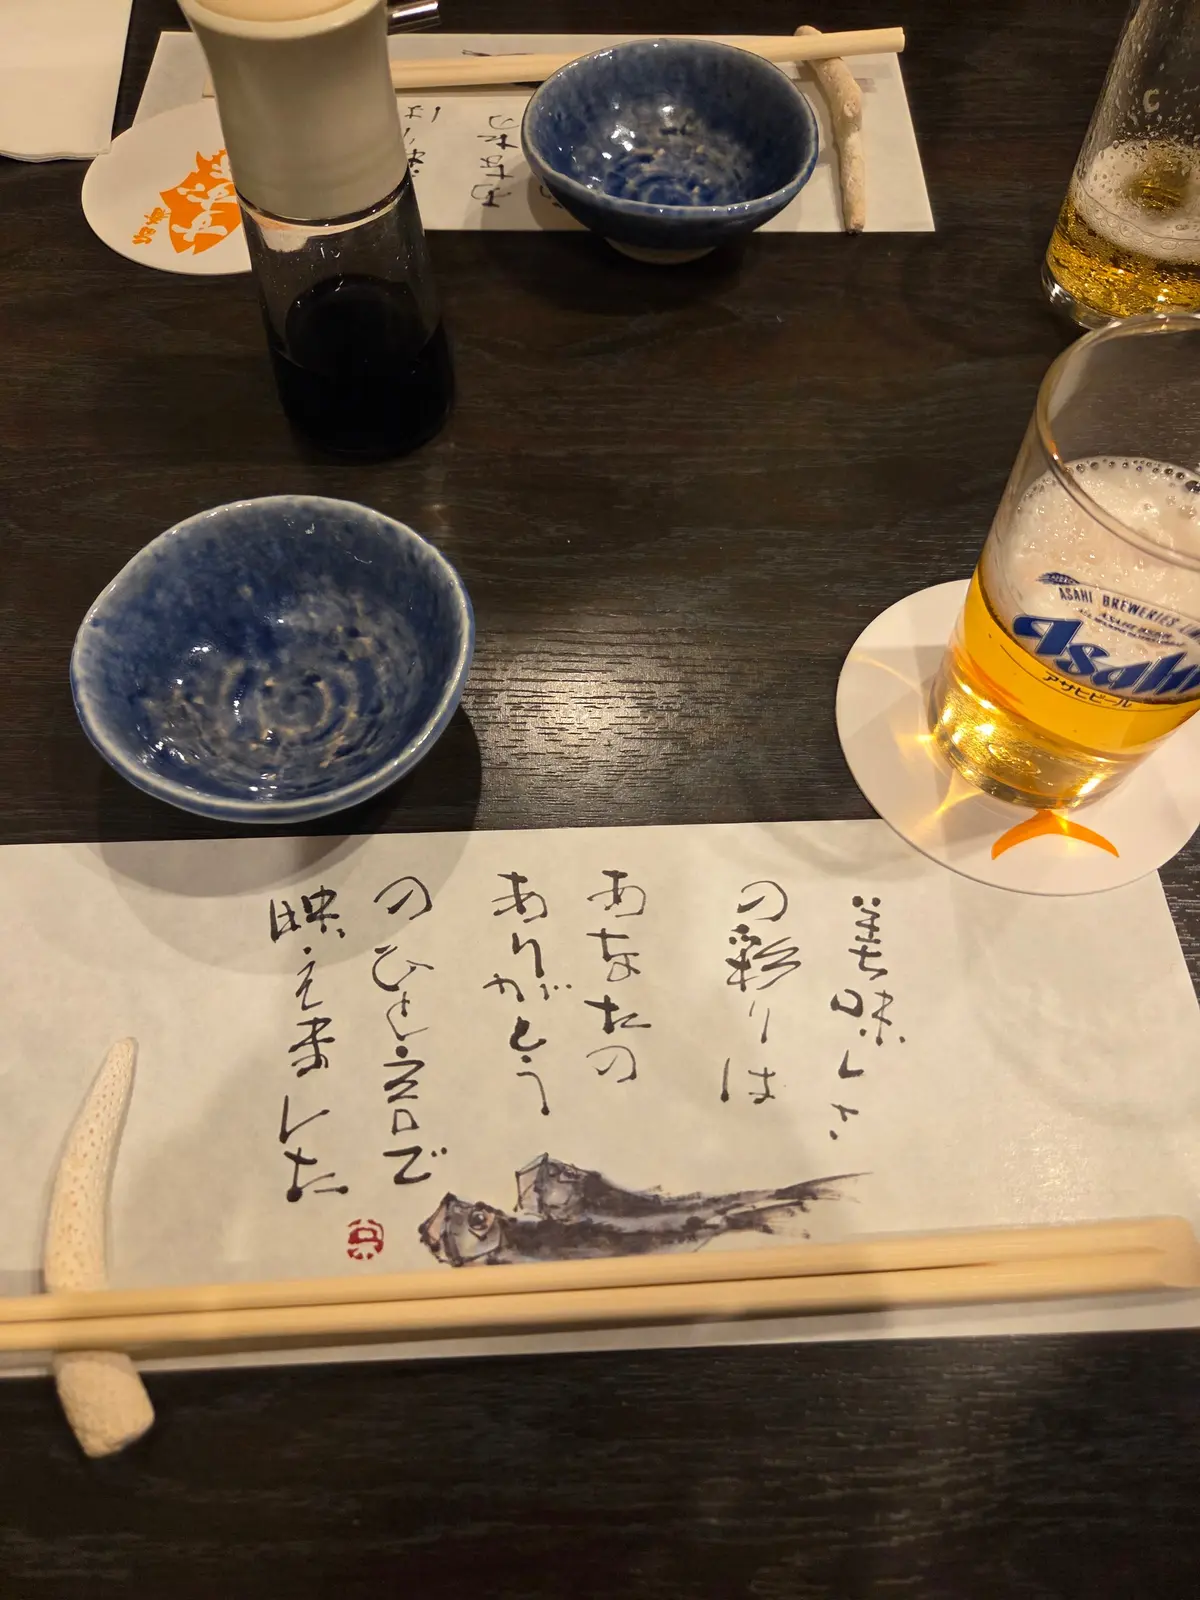 美味しさ
の彩りは
あなたの
ありがとう
のひと言で
映えました
ASAHI BREWERIES
Asahi
アサヒビール
は
あなたの